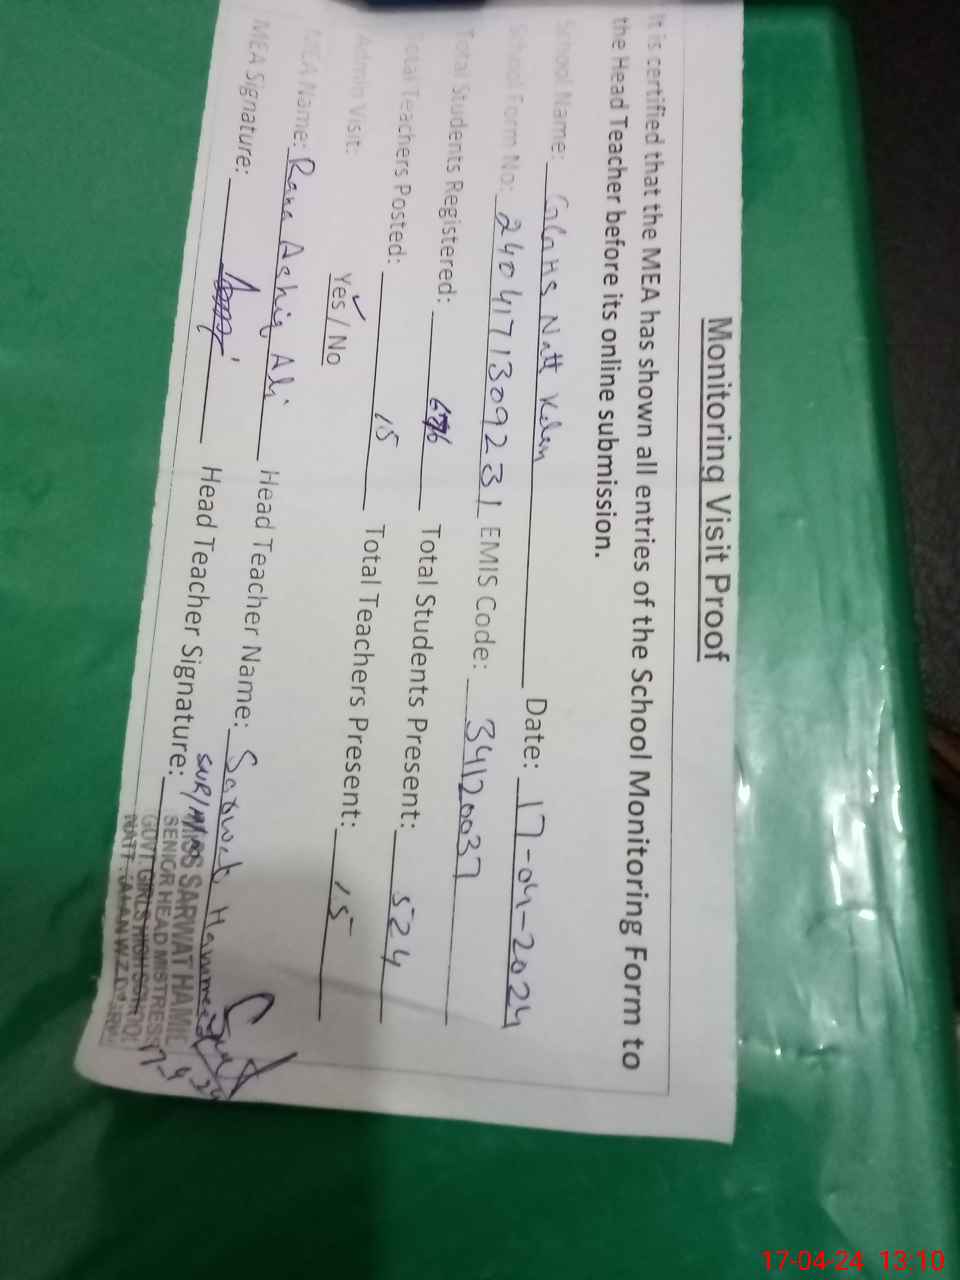 Monitoring Visit Proof
It is certified that the MEA has shown all entries of the School Monitoring Form to
the Head Teacher before its online submission.
School Name: GGHS Natt Kalan Date: 17-04-2024
School Form No: 24041713092231 EMIS Code: 34120037
Total Students Registered: Total Students Present: 524
Total Teachers Posted: 15 Total Teachers Present: 15
Admin Visit: Yes / No
MEA Name: Rana Ashiq Ali Head Teacher Name: Sarwat Hameed
MEA Signature: Head Teacher Signature:
MISS SARWAT HAMEED
SENIOR HEAD MISTRESS
GOVT. GIRLS HIGH SCHOOL
NATT KALAN
17-4-24
17-04-24 13:10